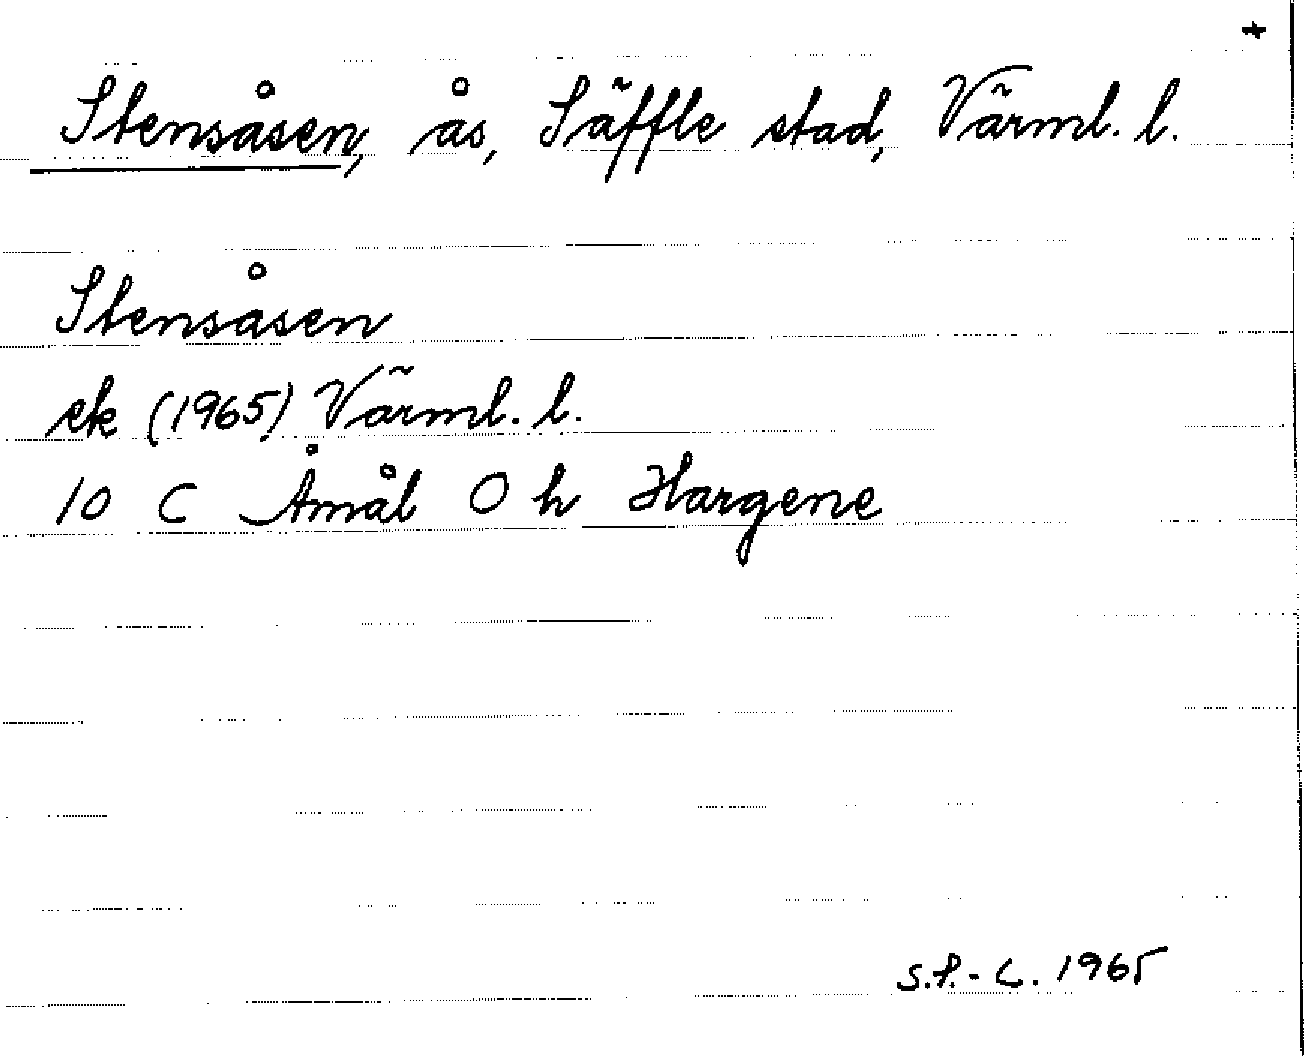 +
Stensåsen, ås, Säffle stad, Värml. l.
Stensåsen
ek (1965) Värml. l.
10 C Åmål O h Hargene
S.P.-L. 1965